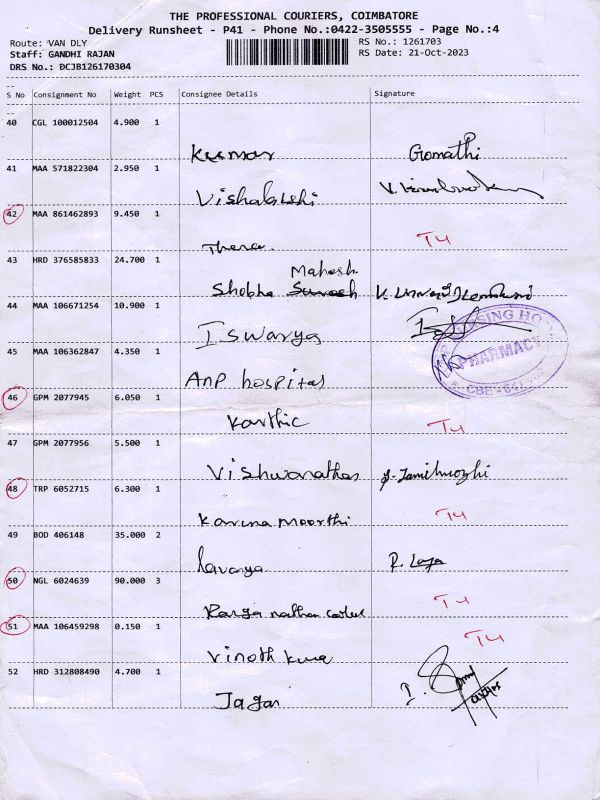 THE PROFESSIONAL COURIERS, COIMBATORE
Delivery Runsheet - P41 - Phone No.:0422-3505555 - Page No.:4
Route: VAN DLY RS No.: 1261703
Staff: GANDHI RAJAN RS Date: 21-Oct-2023
DRS No.: DCJB126170304
S No Consignment No Weight PCS Consignee Details Signature
40 CGL 100012504 4.900 1
Kumar Gomathi
41 MAA 571822304 2.950 1
Vishalatshi
42 MAA 861462893 9.450 1
T4
43 HRD 376585833 24.700 1
Mahesh
Shobha Suresh
44 MAA 106671254 10.900 1
Iswarya
45 MAA 106362847 4.350 1
PHARMACY
ANP hospital
46 GPM 2077945 6.050 1
Karthic T4
47 GPM 2077956 5.500 1
Vishwanathan
48 TRP 6052715 6.300 1
moorthi T4
49 BOD 406148 35.000 2
Lavanya
50 NGL 6024639 90.000 3
T4
51 MAA 106459298 0.150 1
T4
Vinoth
52 HRD 312808490 4.700 1
Jagan